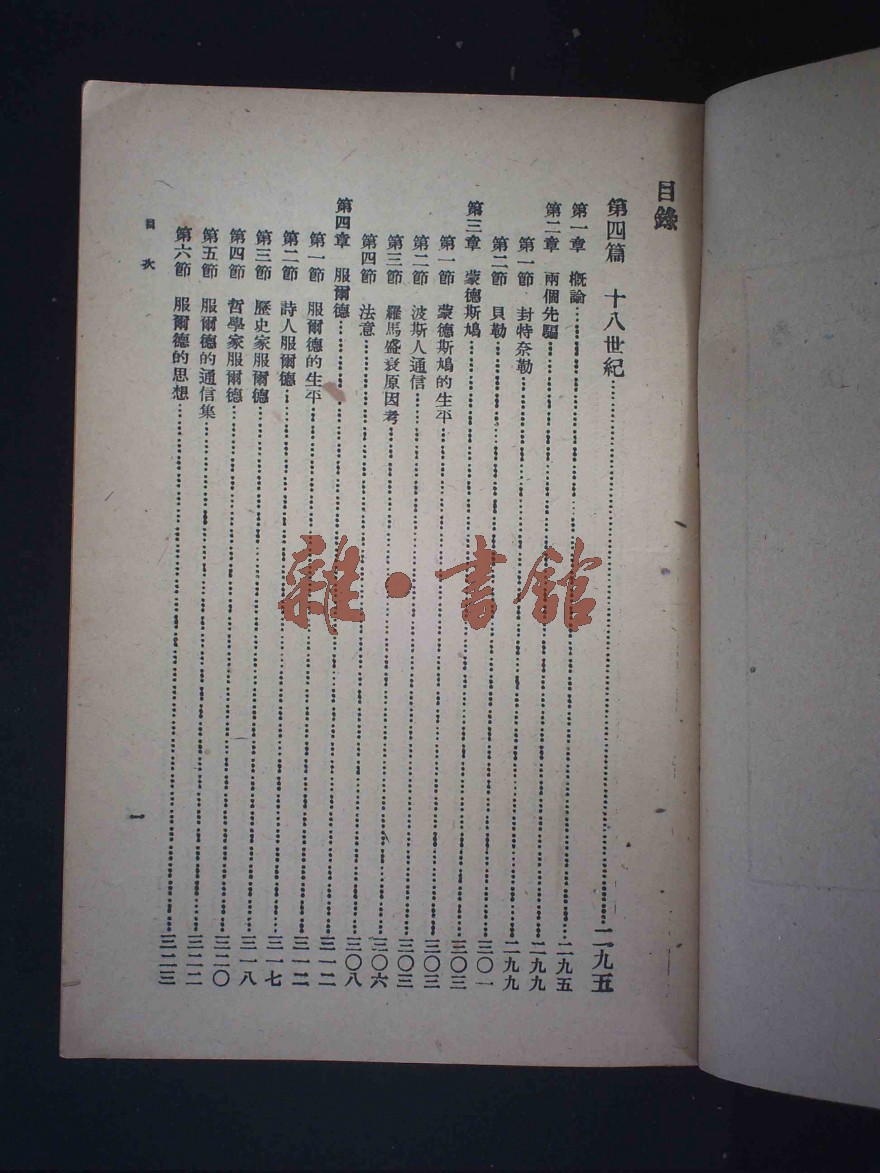 目錄
第四篇 十八世紀……二九五
第一章 概論……二九五
第二章 兩個先驅……二九九
第一節 封特奈勒……二九九
第二節 貝勒……三〇一
第三章 蒙德斯鳩……三〇三
第一節 蒙德斯鳩的生平……三〇三
第二節 波斯人通信……三〇三
第三節 羅馬盛衰原因考……三〇六
第四節 法意……三〇八
第四章 服爾德……三一二
第一節 服爾德的生平……三一二
第二節 詩人服爾德……三一七
第三節 歷史家服爾德……三一八
第四節 哲學家服爾德……三二〇
第五節 服爾德的通信集……三二二
第六節 服爾德的思想……三二三
目次
一
雜·書館